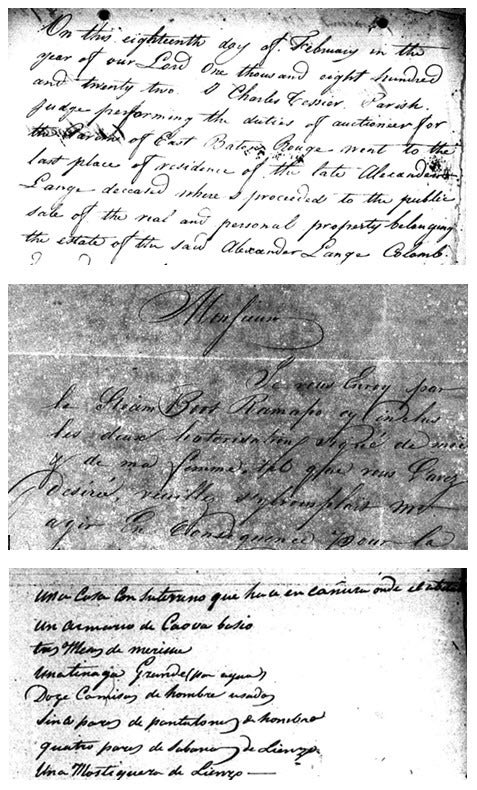 On this eighteenth day of February in the
year of our Lord One thousand eight hundred
and twenty two. I Charles Tessier. Parish.
Judge performing the duties of auctionier for
the Parish of East Baton Rouge went to the
last place of residence of the late Alexander
Lange deceased where I proceeded to the public
sale of the real and personal property belonging
the estate of the said Alexander Lange Colomb.
Monsieur
Je vous Envoy par
le Steam Boot Ramapo cy inclus
les deux hotorisation de moi
y de ma femme, tel que vous l'avez
desiré, veuille m
agir En Consequence pour la
Una Casa Con suterrano que hace en
un armario de Caova basio
tres Mesas de merisie
Una tinaja Grande (por agua)
Doze Camisas de hombre usadas
Sinco pares de pantalones de hombre
quatro pares de Sabanas de Lienzo
Una Mostiquera de Lienzo